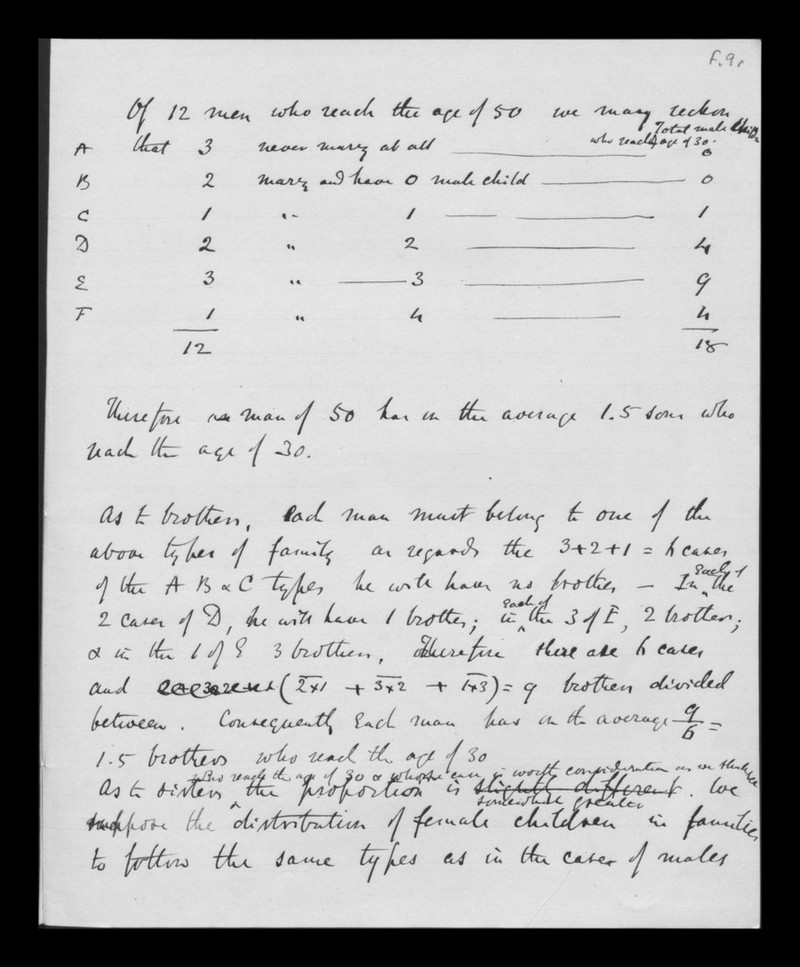 f.9r
Of 12 men who reach the age of 50 we may reckon
Total male
who reach age of 30.
A that 3 never marry at all 0
B 2 marry and have 0 male child 0
C 1 " 1 1
D 2 " 2 4
E 3 " 3 9
F 1 " 4 4
12 18
Therefore a man of 50 has on the average 1.5 sons who
reach the age of 30.
As to brothers, each man must belong to one of the
above types of family as regards the 3+2+1 = 6 cases
of the A B & C types he will have no brother — In each of the
2 cases of D, he will have 1 brother; in each of the 3 of E, 2 brothers;
& in the 1 of E 3 brothers. Therefore there are 6 cases
and (2×1 + 3×2 + 1×3) = 9 brothers divided
between. Consequently each man has on the average 9/6 =
1.5 brothers who reach the age of 30
who reach the age of 30 & whose case is worth consideration as we shall see
As to sisters the proportion is slightly different. We
somewhat greater
suppose the distribution of female children in families
to follow the same types as in the case of males